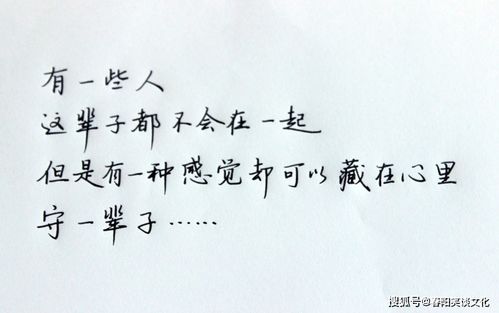 有一些人
这辈子都不会在一起
但是有一种感觉却可以藏在心里
守一辈子……
搜狐号@春阳笑谈文化